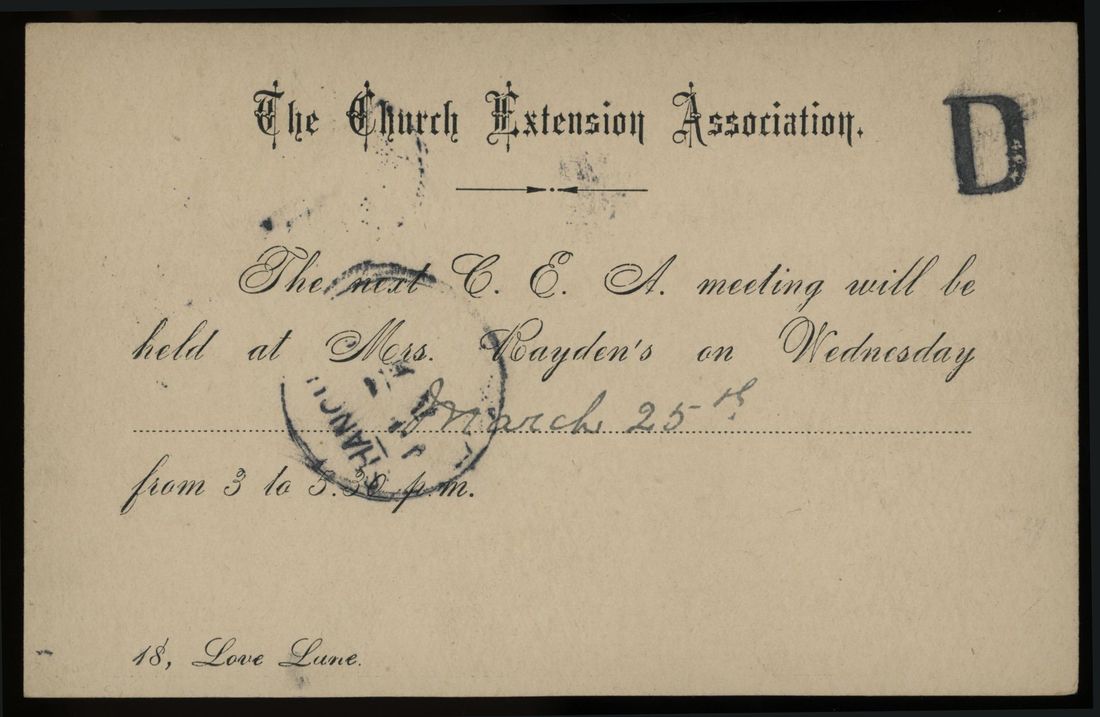 The Church Extension Association.
D
The next C. E. A. meeting will be
held at Mrs. Rayden's on Wednesday
March 25th
from 3 to 5.30 p.m.
18, Love Lune.